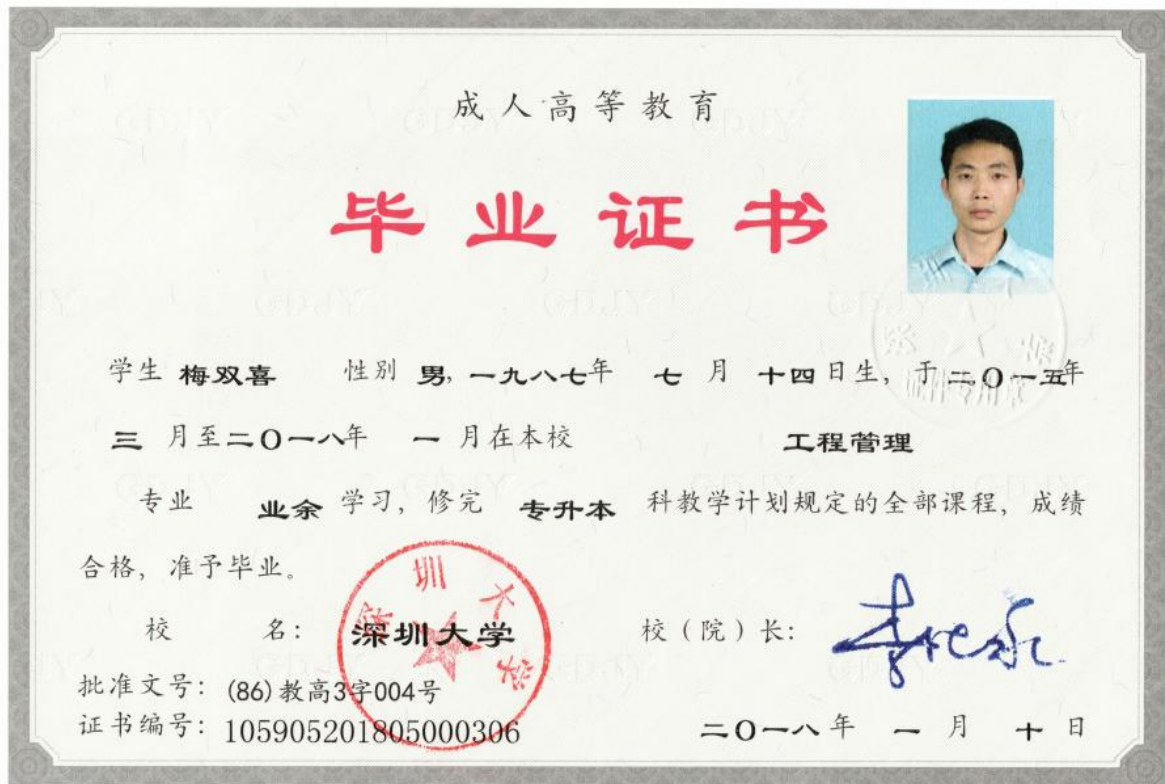 成人高等教育
毕业证书
学生 梅双喜 性别 男, 一九八七年 七 月 十四 日生, 于 二〇一五年
三 月至二〇一八年 一 月在本校 工程管理
专业 业余 学习, 修完 专升本 科教学计划规定的全部课程, 成绩
合格, 准予毕业。
校 名: 深圳大学 校(院)长:
深圳大学
批准文号: (86)教高3字004号
证书编号: 105905201805000306
二〇一八年 一 月 十 日
证件专用章
GDJY